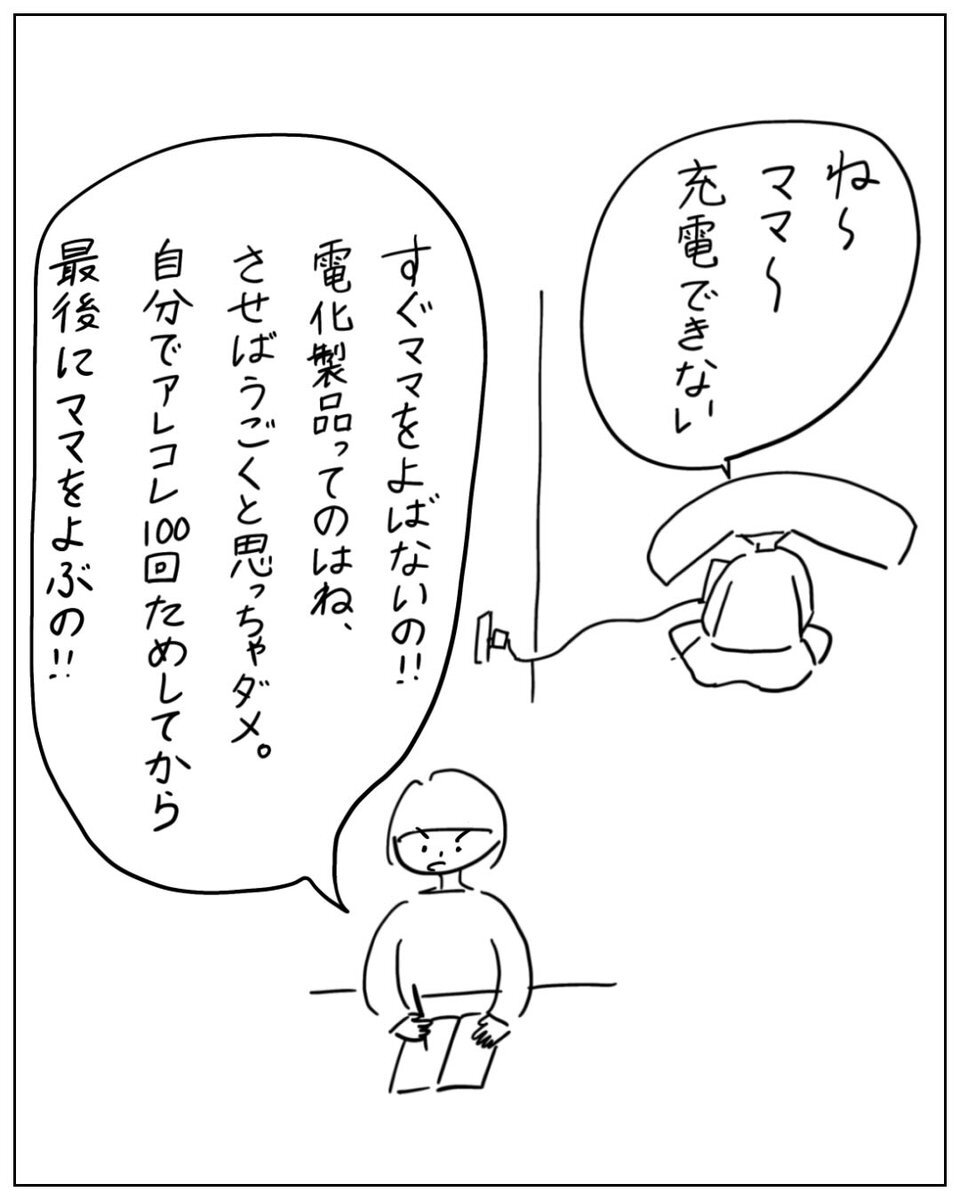 ね〜
ママ〜
充電できない
すぐママをよばないの!!
電化製品ってのはね、
させばうごくと思っちゃダメ。
自分でアレコレ100回ためしてから
最後にママをよぶの!!